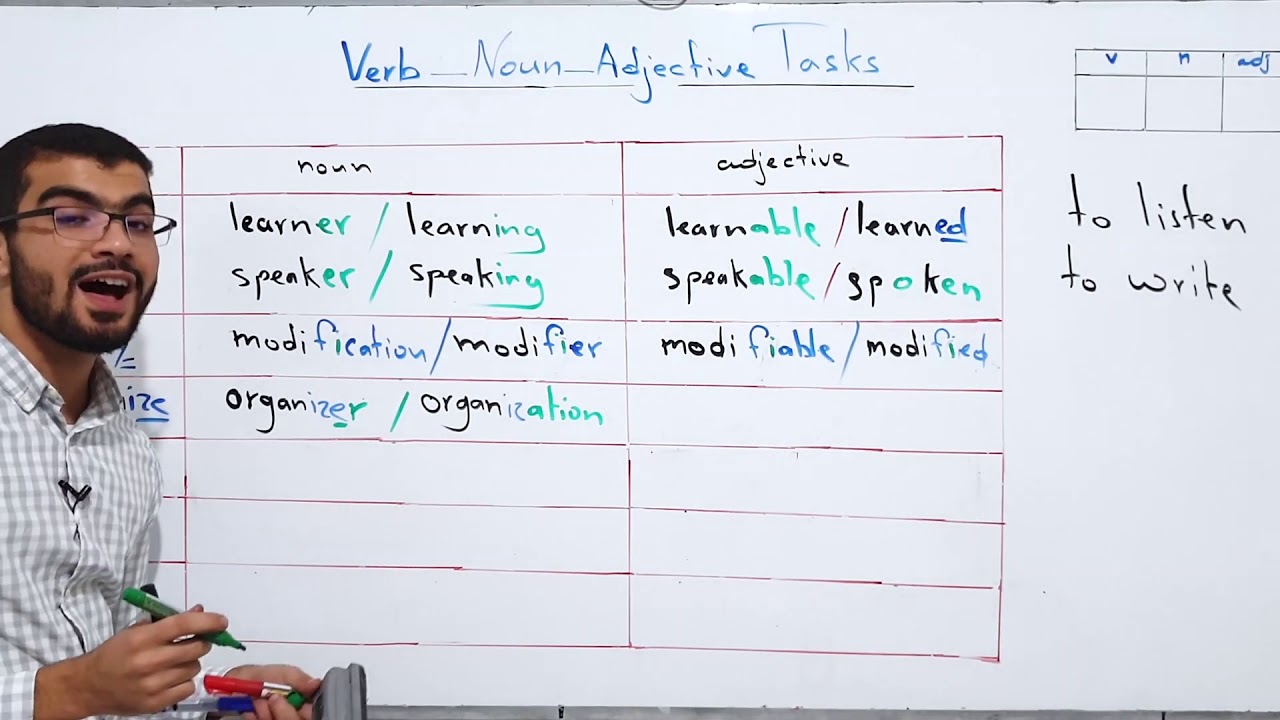 Verb_Noun_Adjective Tasks
v n adj
noun adjective
learner / learning learnable / learned
speaker / speaking speakable / spoken
modification / modifier modifiable / modified
organizer / organization
to listen
to write